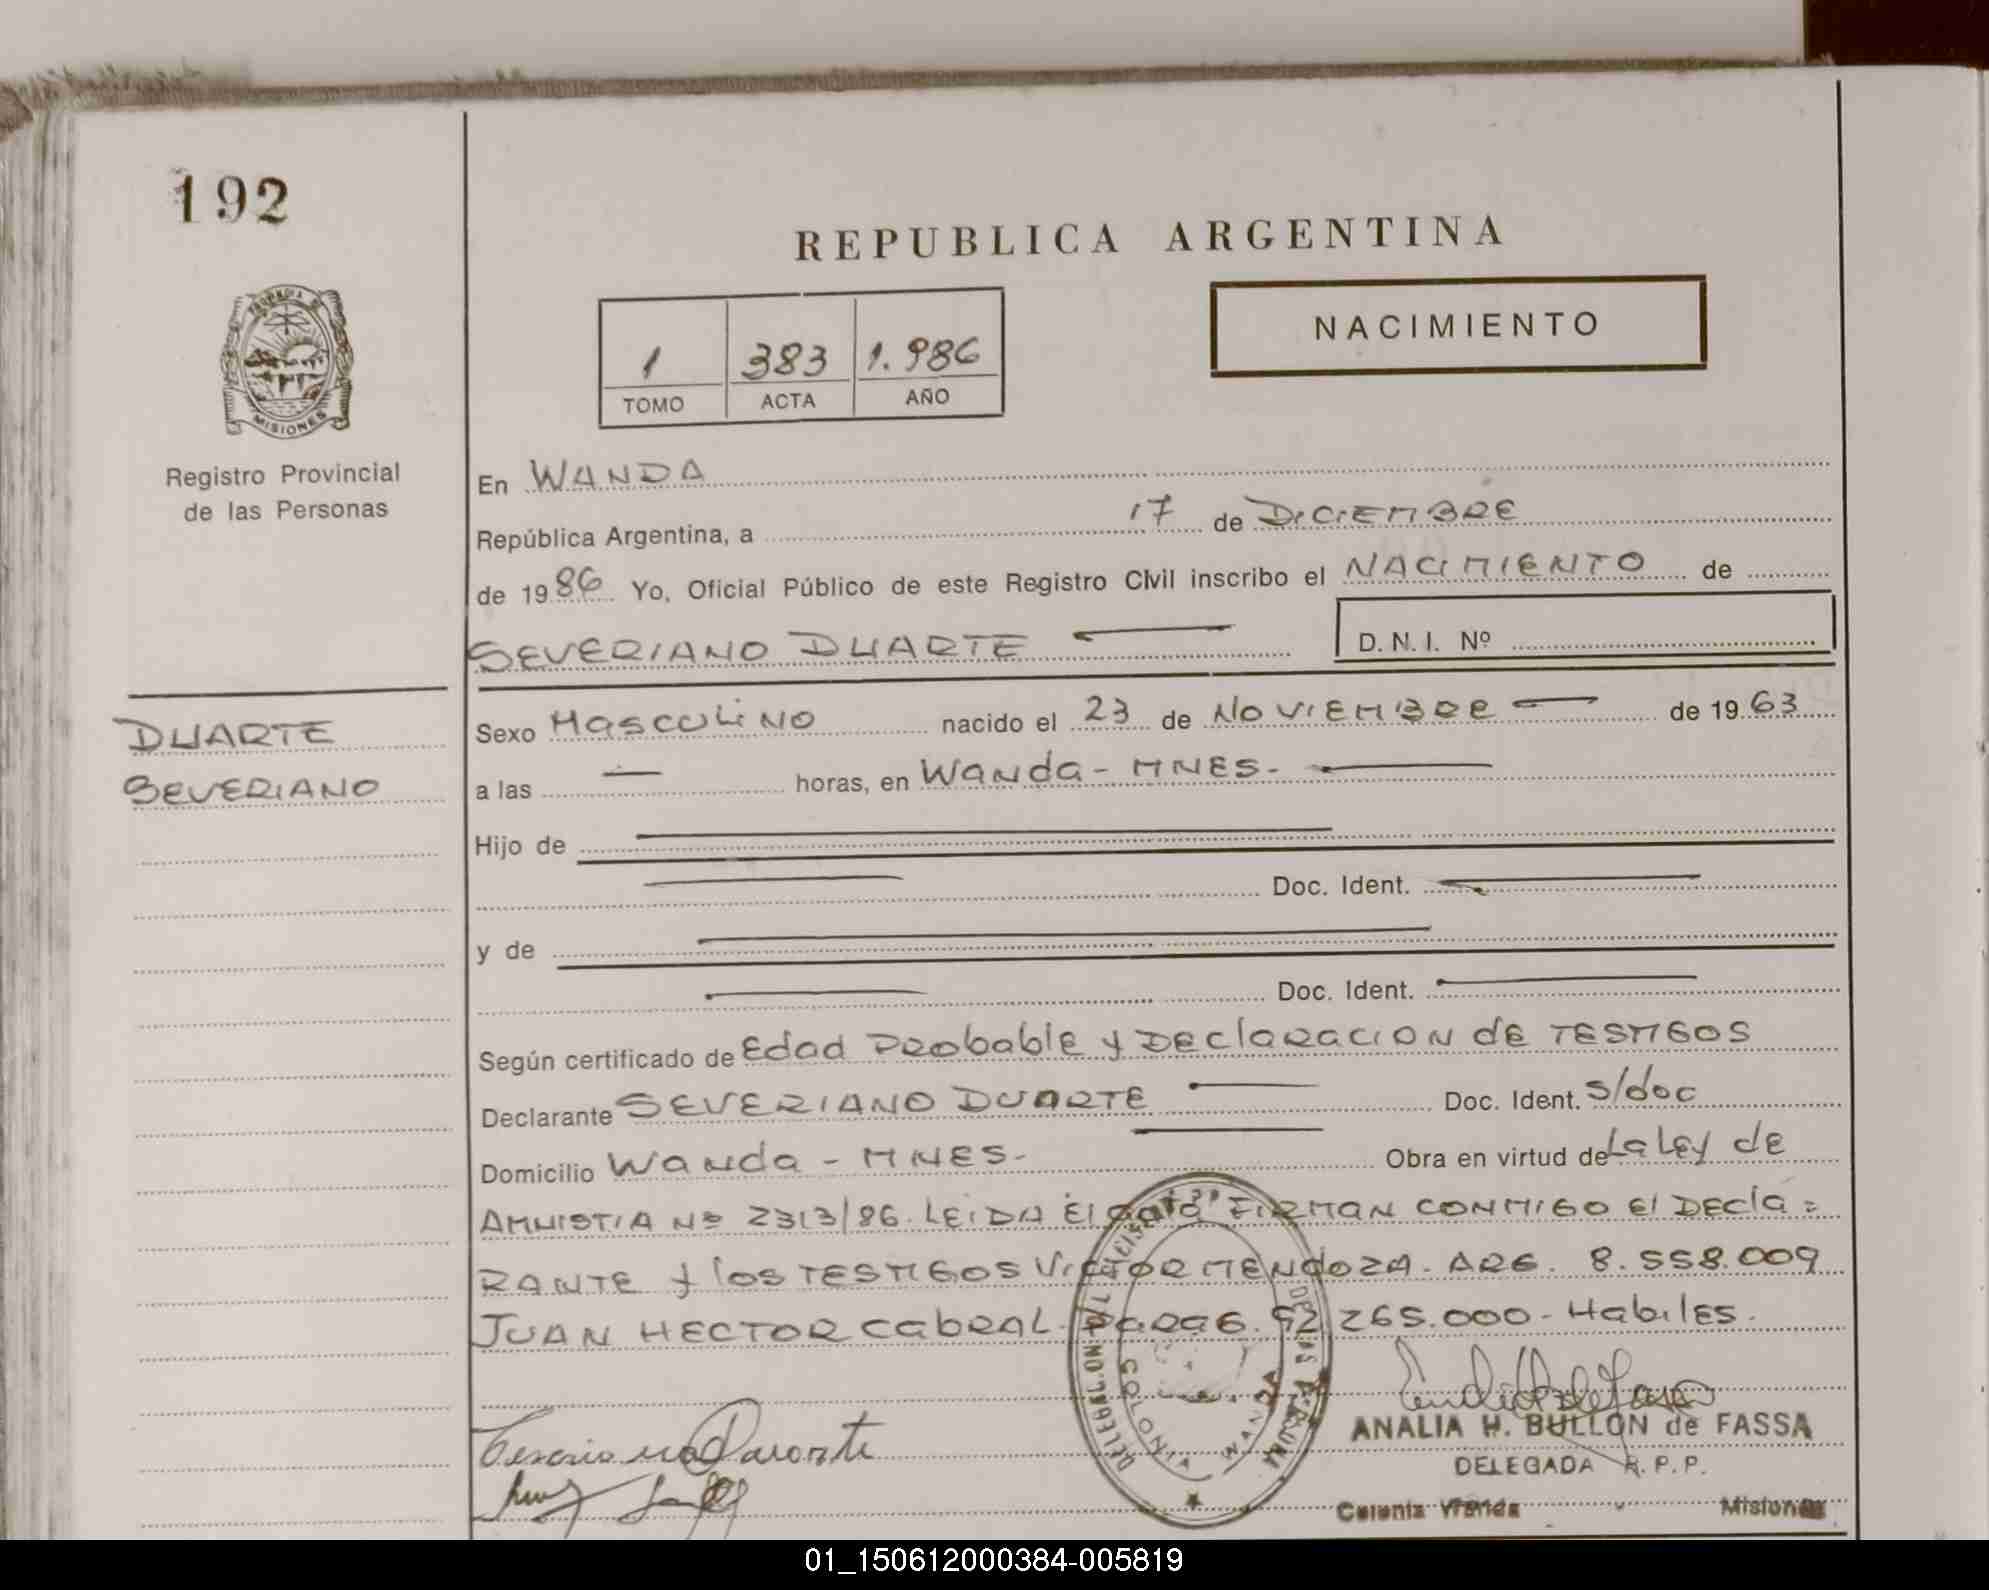 192
REPUBLICA ARGENTINA
NACIMIENTO
1 383 1.986
TOMO ACTA AÑO
PROVINCIA DE
MISIONES
Registro Provincial
de las Personas
En WANDA
República Argentina, a 17 de DICIEMBRE
de 1986 Yo, Oficial Público de este Registro Civil inscribo el NACIMIENTO de
SEVERIANO DUARTE D.N.I. Nº
DUARTE
SEVERIANO
Sexo Masculino nacido el 23 de NOVIEMBRE de 1963
a las horas, en Wanda - MNES.
Hijo de
Doc. Ident.
y de
Doc. Ident.
Según certificado de Edad Probable y Declaracion de TESTIGOS
Declarante SEVERIANO DUARTE Doc. Ident. s/doc
Domicilio Wanda - MNES. Obra en virtud de La Ley de
AMNISTIA Nº 2313/86. LEIDA El acta FIRMAN CONMIGO El DECLA=
RANTE y los TESTIGOS VICTOR MENDOZA. ARG. 8.558.009
JUAN HECTOR CABRAL. PARAG. 92.265.000 - Habiles.
COLONIA WANDA
ANALIA H. BULLON de FASSA
DELEGADA R.P.P.
Colonia Wanda Misiones
01_150612000384-005819